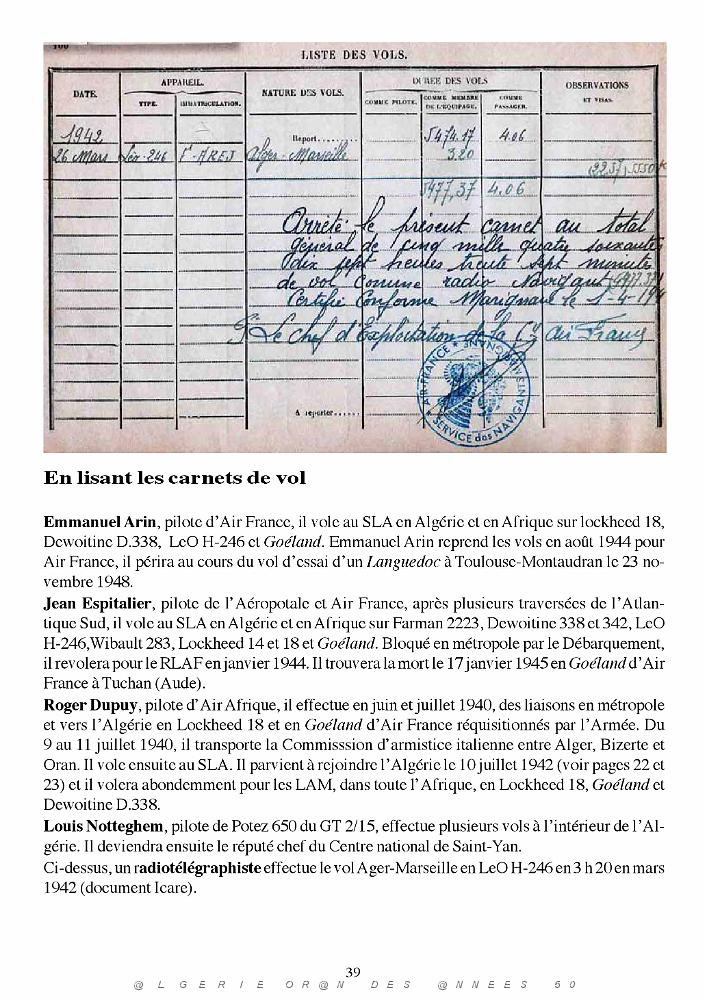 LISTE DES VOLS.
DATE.
APPAREIL.
TYPE.
IMMATRICULATION.
NATURE DES VOLS.
DURÉE DES VOLS
COMME PILOTE.
COMME MEMBRE DE L'ÉQUIPAGE.
COMME PASSAGER.
OBSERVATIONS
ET VISAS.
1942
Report........
5474.17 4.06
26 Mars Léo-246 F-AREJ Alger-Marseille 3.20
5477,37 4.06
Arrêté le présent carnet au total
général de cinq mille quatre soixante
dix sept heures trente sept minutes
de vol comme radio Navigant
Certifié Conforme Marignane le 1-4-
Le chef d'Exploitation de la Cie Air France
AIR-FRANCE
SERVICE des NAVIGANTS
A reporter......
En lisant les carnets de vol
Emmanuel Arin, pilote d'Air France, il vole au SLA en Algérie et en Afrique sur lockheed 18,
Dewoitine D.338, LeO H-246 et Goéland. Emmanuel Arin reprend les vols en août 1944 pour
Air France, il périra au cours du vol d'essai d'un Languedoc à Toulouse-Montaudran le 23 no-
vembre 1948.
Jean Espitalier, pilote de l'Aéropotale et Air France, après plusieurs traversées de l'Atlan-
tique Sud, il vole au SLA en Algérie et en Afrique sur Farman 2223, Dewoitine 338 et 342, LeO
H-246,Wibault 283, Lockheed 14 et 18 et Goéland. Bloqué en métropole par le Débarquement,
il revolera pour le RLAF en janvier 1944. Il trouvera la mort le 17 janvier 1945 en Goéland d'Air
France à Tuchan (Aude).
Roger Dupuy, pilote d'Air Afrique, il effectue en juin et juillet 1940, des liaisons en métropole
et vers l'Algérie en Lockheed 18 et en Goéland d'Air France réquisitionnés par l'Armée. Du
9 au 11 juillet 1940, il transporte la Commisssion d'armistice italienne entre Alger, Bizerte et
Oran. Il vole ensuite au SLA. Il parvient à rejoindre l'Algérie le 10 juillet 1942 (voir pages 22 et
23) et il volera abondemment pour les LAM, dans toute l'Afrique, en Lockheed 18, Goéland et
Dewoitine D.338.
Louis Notteghem, pilote de Potez 650 du GT 2/15, effectue plusieurs vols à l'intérieur de l'Al-
gérie. Il deviendra ensuite le réputé chef du Centre national de Saint-Yan.
Ci-dessus, un radiotélégraphiste effectue le vol Ager-Marseille en LeO H-246 en 3 h 20 en mars
1942 (document Icare).
39
@ L G E R I E O R @ N D E S @ N N E E S 5 0